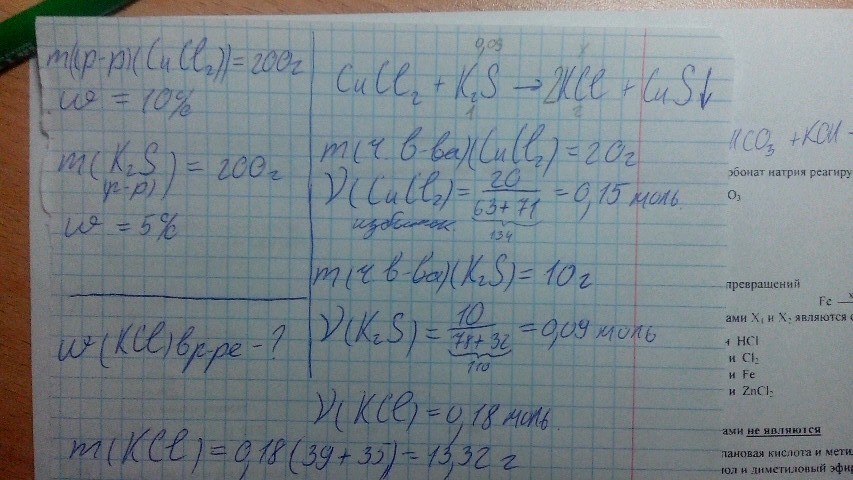 m(р-р)(CuCl₂)=200г
w = 10%
m(K₂S) = 200г
(р-р)
w = 5%
w(KCl)в р-ре - ?
0,09 x
CuCl₂ + K₂S → 2KCl + CuS↓
1 2
m(ч. в-ва)(CuCl₂) = 20г
ν(CuCl₂) = 20/(63+71) = 0,15 моль
избыток 134
m(ч. в-ва)(K₂S) = 10г
ν(K₂S) = 10/(78+32) = 0,09 моль
110
ν(KCl) = 0,18 моль.
m(KCl) = 0,18(39+35) = 13,32 г
HCO₃ + KOH -
рбонат натрия реагиру
O₃
превращений
Fe
ами X₁ и X₂ являются с
и HCl
и Cl₂
и Fe
и ZnCl₂
ами не являются
лановая кислота и мети
ол и диметиловый эфир